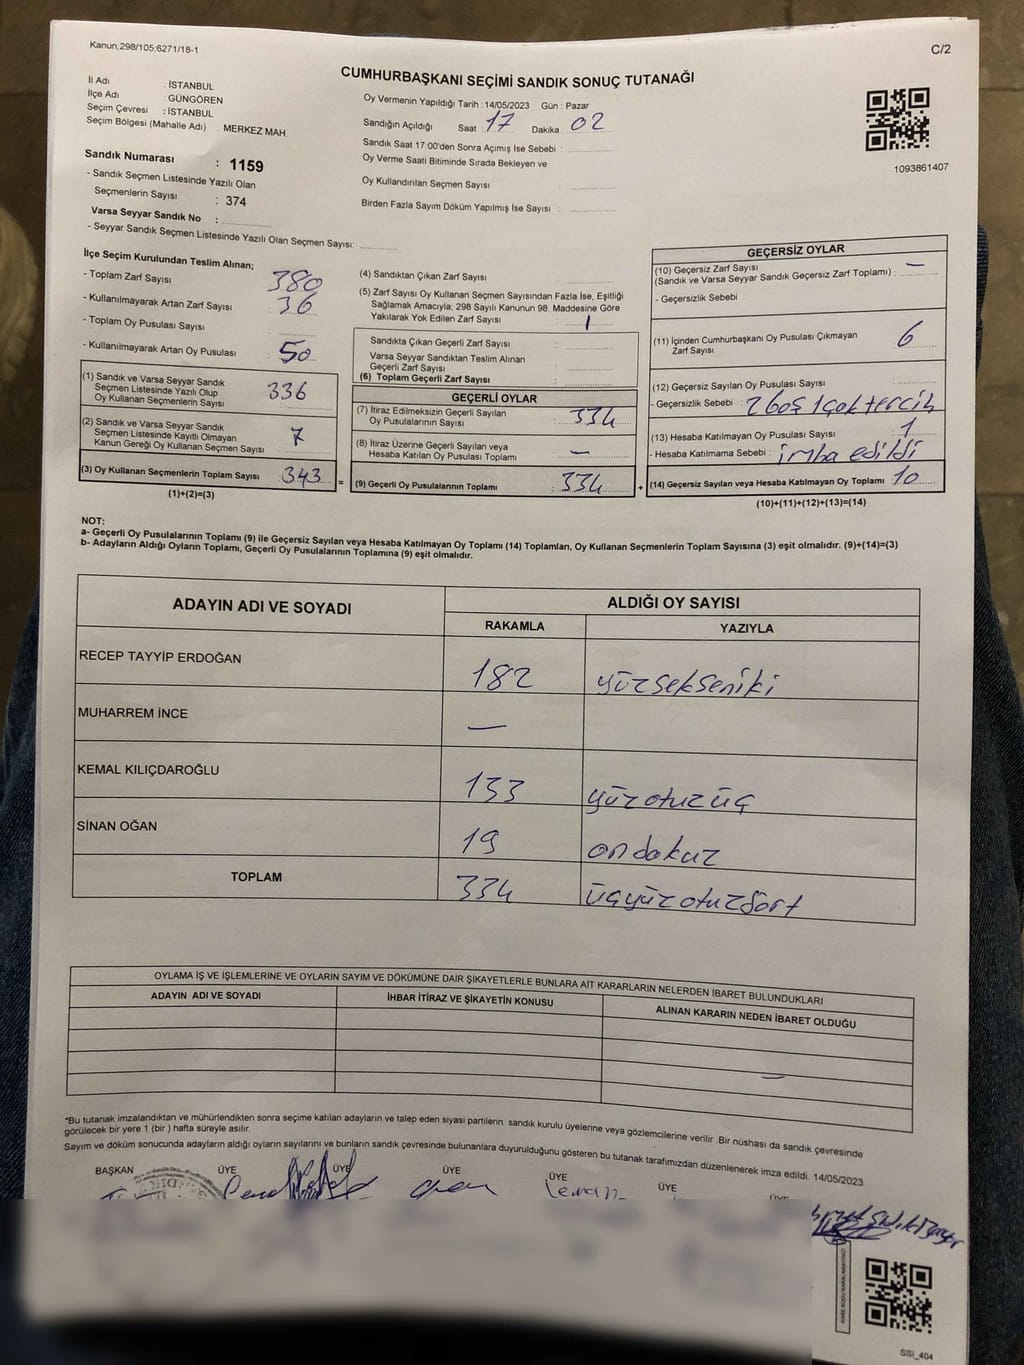 Kanun;298/105;6271/18-1
C/2
CUMHURBAŞKANI SEÇİMİ SANDIK SONUÇ TUTANAĞI
İl Adı : İSTANBUL
İlçe Adı : GÜNGÖREN
Seçim Çevresi : İSTANBUL
Seçim Bölgesi (Mahalle Adı) : MERKEZ MAH.
Sandık Numarası : 1159
- Sandık Seçmen Listesinde Yazılı Olan
Seçmenlerin Sayısı : 374
Varsa Seyyar Sandık No :
- Seyyar Sandık Seçmen Listesinde Yazılı Olan Seçmen Sayısı:
Oy Vermenin Yapıldığı Tarih :14/05/2023 Gün : Pazar
Sandığın Açıldığı Saat : 17 Dakika : 02
Sandık Saat 17:00'den Sonra Açımış İse Sebebi :
Oy Verme Saati Bitiminde Sırada Bekleyen ve
Oy Kullandırılan Seçmen Sayısı :
Birden Fazla Sayım Döküm Yapılmış İse Sayısı :
1093861407
İlçe Seçim Kurulundan Teslim Alınan;
- Toplam Zarf Sayısı : 380
- Kullanılmayarak Artan Zarf Sayısı : 36
- Toplam Oy Pusulası Sayısı :
- Kullanılmayarak Artan Oy Pusulası : 50
(1) Sandık ve Varsa Seyyar Sandık
Seçmen Listesinde Yazılı Olup
Oy Kullanan Seçmenlerin Sayısı : 336
(2) Sandık ve Varsa Seyyar Sandık
Seçmen Listesinde Kayıtlı Olmayan
Kanun Gereği Oy Kullanan Seçmen Sayısı : 7
(3) Oy Kullanan Seçmenlerin Toplam Sayısı : 343 =
(1)+(2)=(3)
(4) Sandıktan Çıkan Zarf Sayısı :
(5) Zarf Sayısı Oy Kullanan Seçmen Sayısından Fazla İse, Eşitliği
Sağlamak Amacıyla; 298 Sayılı Kanunun 98. Maddesine Göre
Yakılarak Yok Edilen Zarf Sayısı : 1
Sandıkta Çıkan Geçerli Zarf Sayısı :
Varsa Seyyar Sandıktan Teslim Alınan
Geçerli Zarf Sayısı :
(6) Toplam Geçerli Zarf Sayısı :
GEÇERLİ OYLAR
(7) İtiraz Edilmeksizin Geçerli Sayılan
Oy Pusulalarının Sayısı : 334
(8) İtiraz Üzerine Geçerli Sayılan veya
Hesaba Katılan Oy Pusulası Toplamı : —
(9) Geçerli Oy Pusulalarının Toplamı : 334 +
GEÇERSİZ OYLAR
(10) Geçersiz Zarf Sayısı
(Sandık ve Varsa Seyyar Sandık Geçersiz Zarf Toplamı) : —
- Geçersizlik Sebebi :
(11) İçinden Cumhurbaşkanı Oy Pusulası Çıkmayan
Zarf Sayısı : 6
(12) Geçersiz Sayılan Oy Pusulası Sayısı :
- Geçersizlik Sebebi : 2 boş 1 çok tercih
(13) Hesaba Katılmayan Oy Pusulası Sayısı : 1
- Hesaba Katılmama Sebebi : imha edildi
(14) Geçersiz Sayılan veya Hesaba Katılmayan Oy Toplamı : 10
(10)+(11)+(12)+(13)=(14)
NOT:
a- Geçerli Oy Pusulalarının Toplamı (9) ile Geçersiz Sayılan veya Hesaba Katılmayan Oy Toplamı (14) Toplamları, Oy Kullanan Seçmenlerin Toplam Sayısına (3) eşit olmalıdır. (9)+(14)=(3)
b- Adayların Aldığı Oyların Toplamı, Geçerli Oy Pusulalarının Toplamına (9) eşit olmalıdır.
ADAYIN ADI VE SOYADI
ALDIĞI OY SAYISI
RAKAMLA YAZIYLA
RECEP TAYYİP ERDOĞAN 182 yüzsekseniki
MUHARREM İNCE —
KEMAL KILIÇDAROĞLU 133 yüzotuzüç
SİNAN OĞAN 19 ondokuz
TOPLAM 334 üçyüzotuzdört
OYLAMA İŞ VE İŞLEMLERİNE VE OYLARIN SAYIM VE DÖKÜMÜNE DAİR ŞİKAYETLERLE BUNLARA AİT KARARLARIN NELERDEN İBARET BULUNDUKLARI
ADAYIN ADI VE SOYADI İHBAR İTİRAZ VE ŞİKAYETİN KONUSU ALINAN KARARIN NEDEN İBARET OLDUĞU
*Bu tutanak imzalandıktan ve mühürlendikten sonra seçime katılan adayların ve talep eden siyasi partilerin sandık kurulu üyelerine veya gözlemcilerine verilir .Bir nüshası da sandık çevresinde
görülecek bir yere 1 (bir ) hafta süreyle asılır.
Sayım ve döküm sonucunda adayların aldığı oyların sayılarını ve bunların sandık çevresinde bulunanlara duyurulduğunu gösteren bu tutanak tarafımızdan düzenlenerek imza edildi. 14/05/2023
BAŞKAN ÜYE ÜYE ÜYE ÜYE ÜYE
SSİ_404